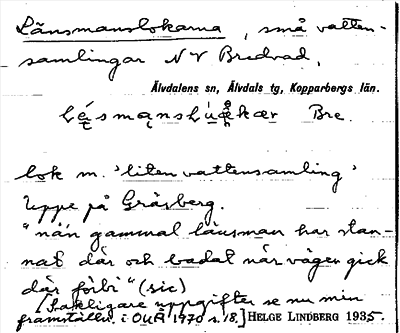 Länsmanslokarna, små vatten-
samlingar NV Bredvad,
Älvdalens sn, Älvdals tg, Kopparbergs län.
Bre.
lok m. 'liten vattensamling'
Uppe på Gråsberg.
"nå'n gammal länsman har stan-
nat där och badat när vägen gick
där förbi" (sic)
[Sakligare uppgifter se nu min
framställn. i OUÅ 1970 s. 18.] HELGE LINDBERG 1935.